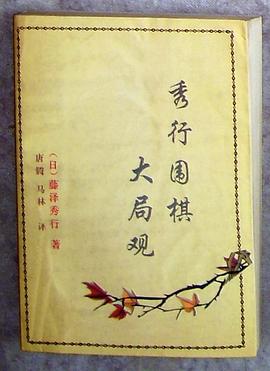 秀行围棋
大局观
(日)藤泽秀行 著
唐腾 马林 译